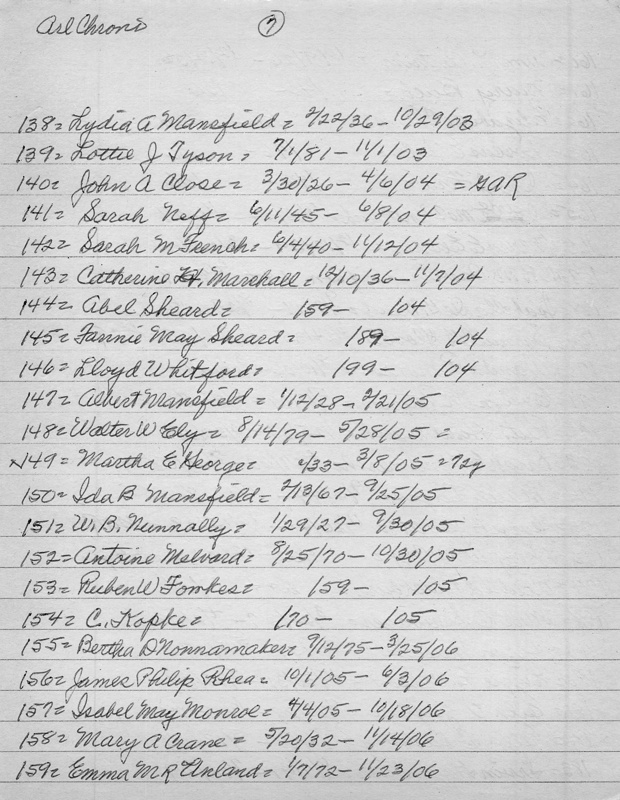 Arl Chrono 7
138= Lydia A Mansfield = 2/22/36 - 10/29/03
139= Lottie J Tyson = 7/1/81 - 11/1/03
140= John A Close = 3/30/26 - 4/6/04 = GAR
141= Sarah Neff = 6/11/45 - 6/8/04
142= Sarah M French = 6/4/40 - 11/12/04
143= Catherine H. Marshall = 12/10/36 - 11/7/04
144= Abel Sheard = /59 - /04
145= Fannie May Sheard = /89 - /04
146= Lloyd Whitford = /99 - /04
147= Albert Mansfield = 1/12/28 - 2/21/05
148= Walter W Ely = 8/14/79 - 5/28/05 =
149= Martha E George = /33 - 3/8/05 = 72y
150= Ida B Mansfield = 2/13/67 - 9/25/05
151= W. B. Nunnally = 1/29/27 - 9/30/05
152= Antoine Melvard = 8/25/70 - 10/30/05
153= Ruben W Fowkes = /59 - /05
154= C. Kopke = /70 - /05
155= Bertha D Nonnamaker = 9/12/75 - 3/25/06
156= James Philip Rhea = 10/1/05 - 6/3/06
157= Isabel May Monroe = 4/4/05 - 10/18/06
158= Mary A Crane = 5/20/32 - 11/14/06
159= Emma M R Anland = 1/7/72 - 11/23/06